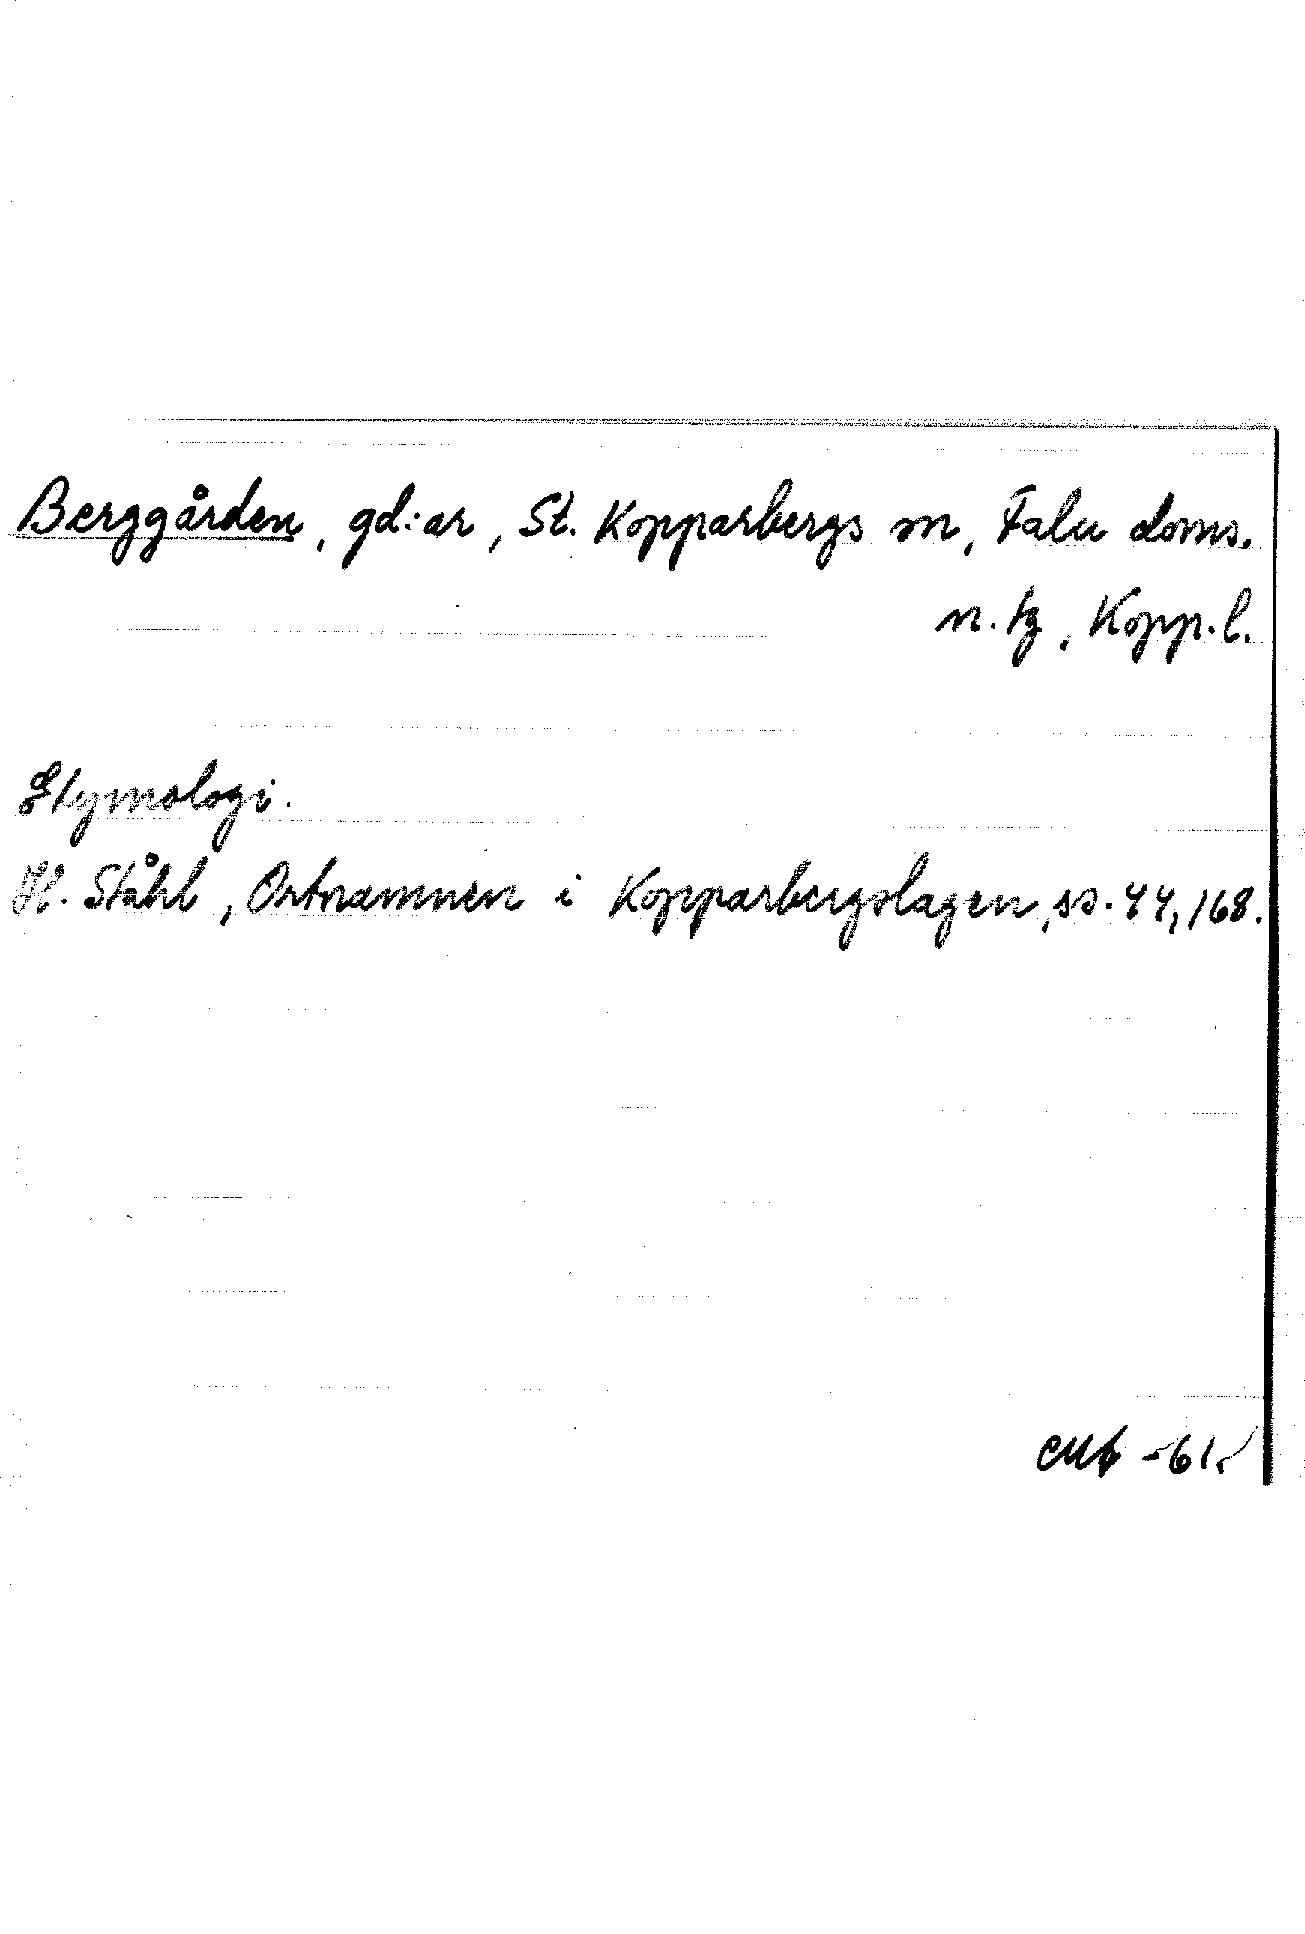 Berggården, gd:ar, St. Kopparbergs sn, Falu doms.
n. tg, Kopp.l.
Etymologi.
H. Ståhl, Ortnamnen i Kopparbergslagen, ss. 44, 168.
-61.